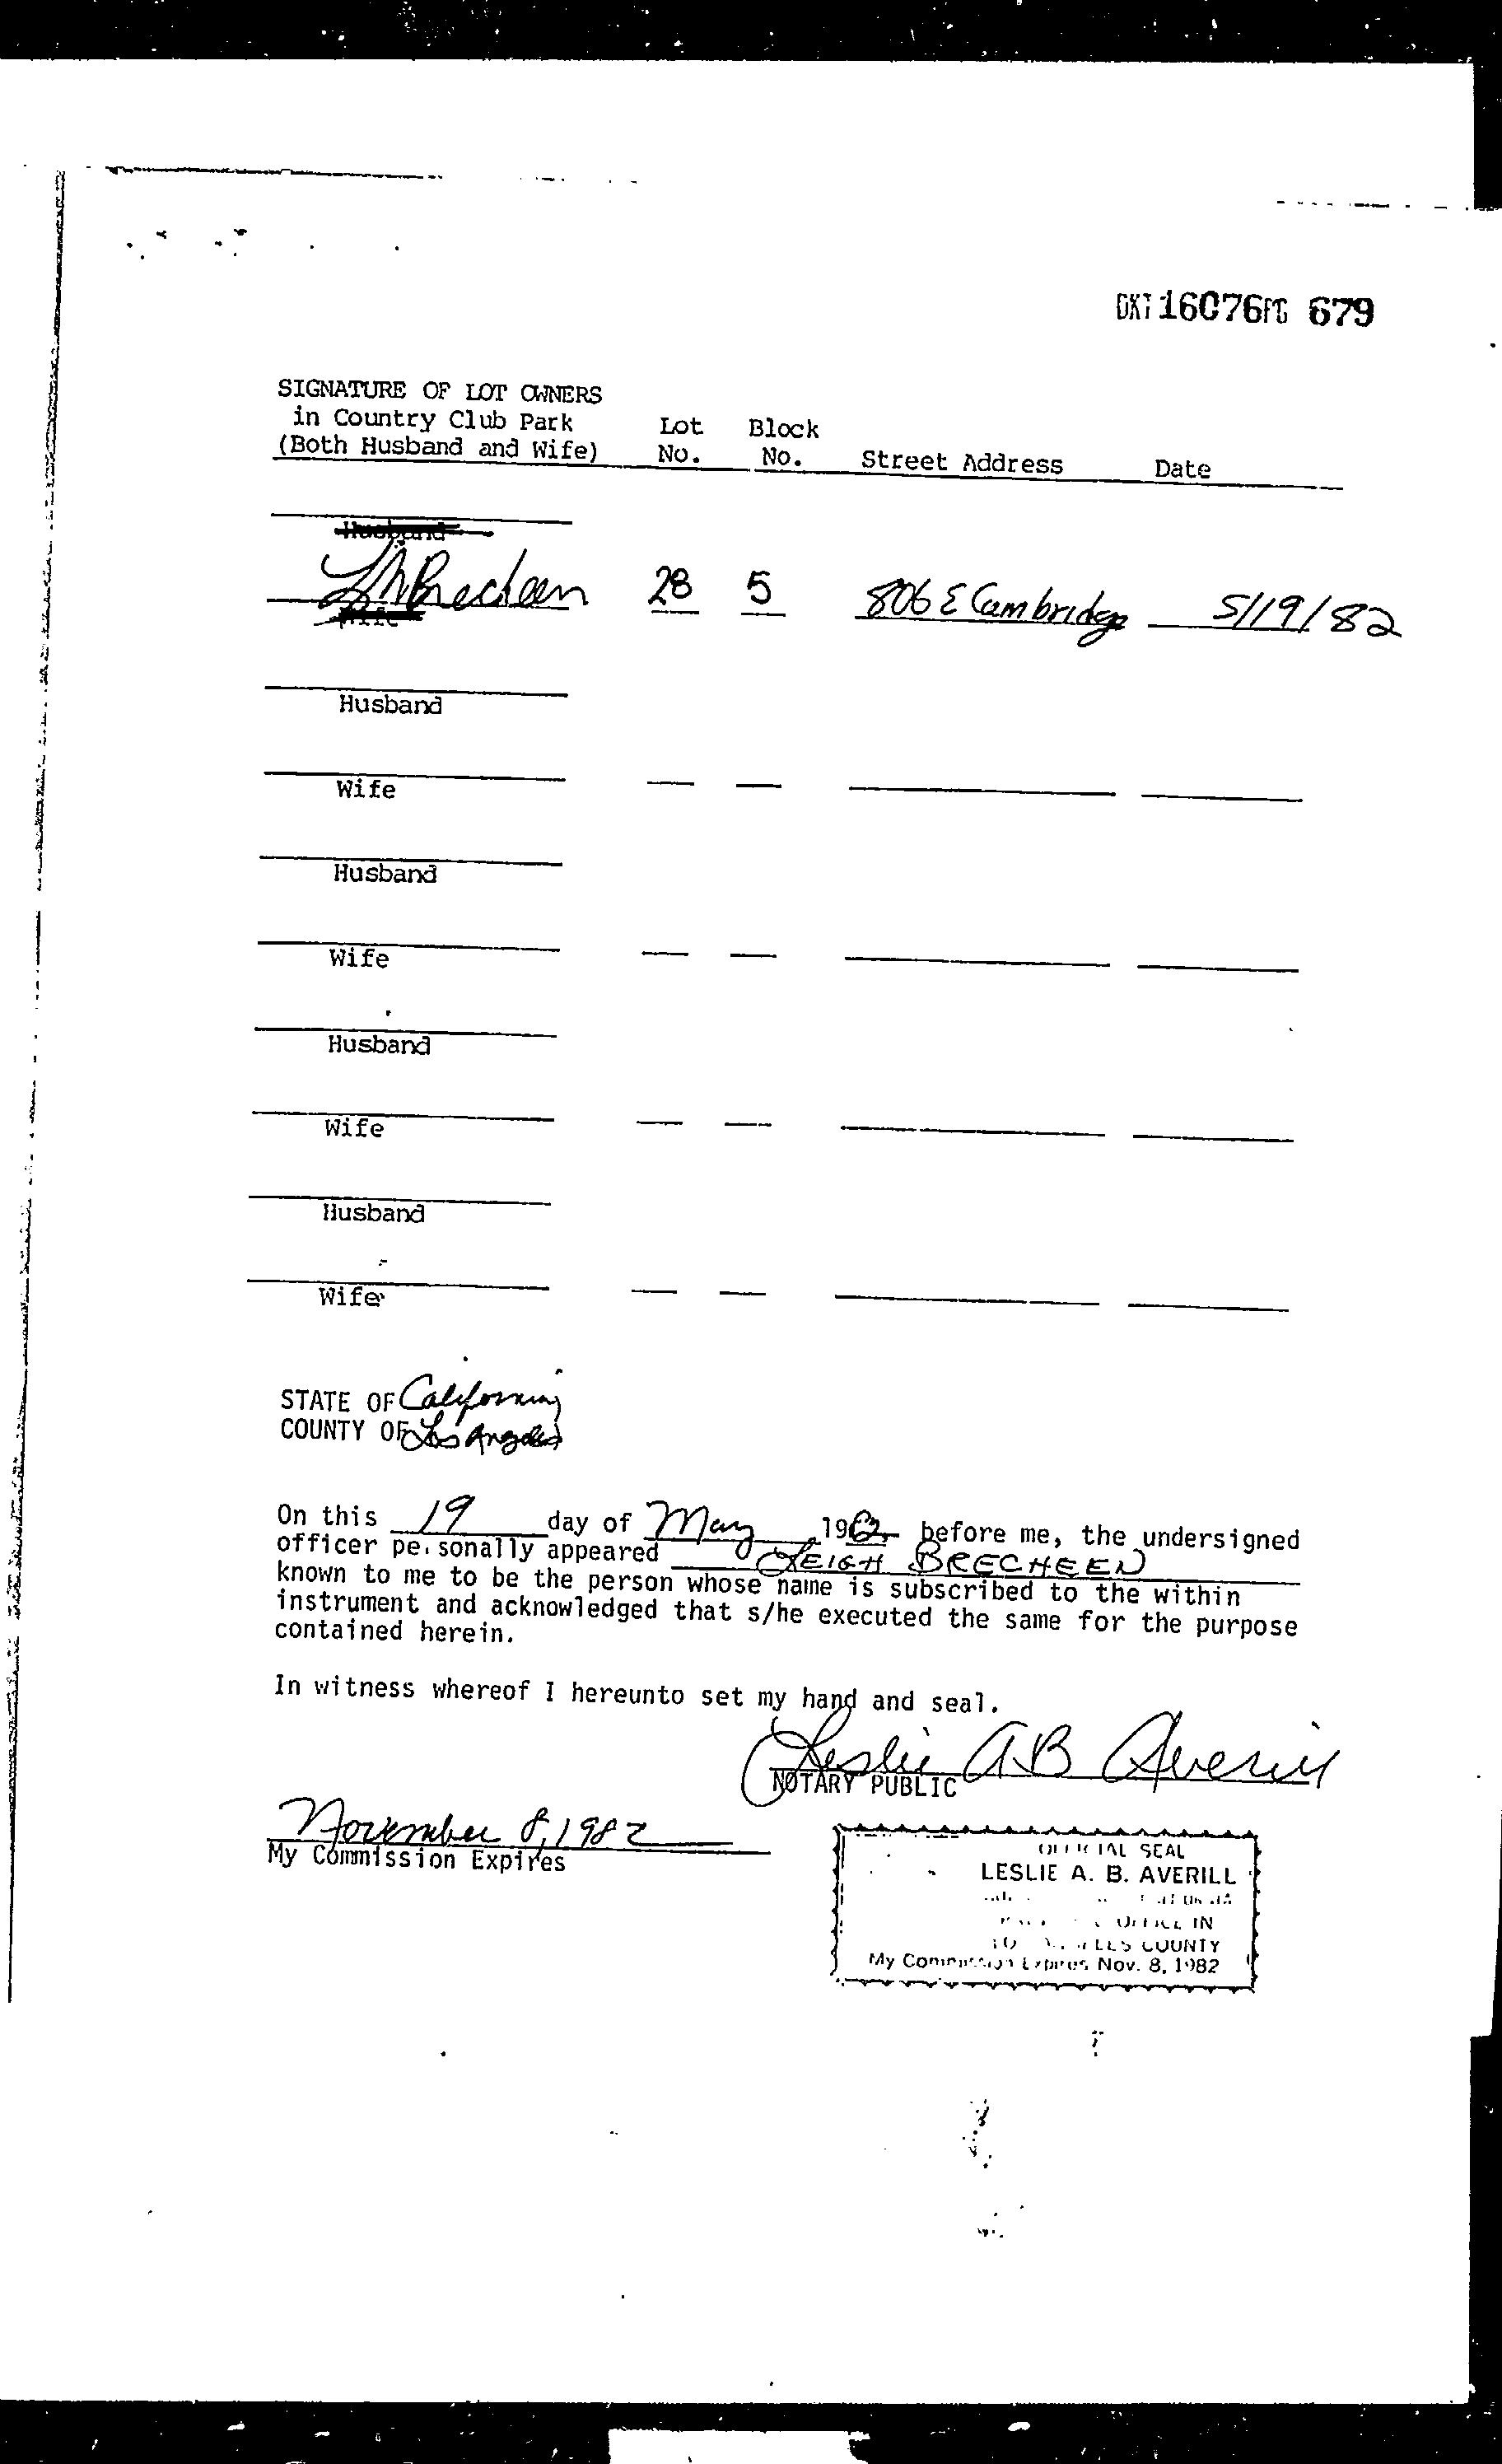 DKT 16076 PG 679
SIGNATURE OF LOT OWNERS
in Country Club Park Lot Block
(Both Husband and Wife) No. No. Street Address Date
Husband
Brecheen 28 5 806 E Cambridge 5/19/82
Wife
Husband
Wife
Husband
Wife
Husband
Wife
Husband
Wife
STATE OF California
COUNTY OF Los Angeles
On this 19 day of May 1982 before me, the undersigned
officer personally appeared LEIGH BRECHEEN
known to me to be the person whose name is subscribed to the within
instrument and acknowledged that s/he executed the same for the purpose
contained herein.
In witness whereof I hereunto set my hand and seal.
Leslie A B Averill
NOTARY PUBLIC
November 8, 1982
My Commission Expires
OFFICIAL SEAL
LESLIE A. B. AVERILL
OFFICE IN
COUNTY
My Commission Expires Nov. 8, 1982